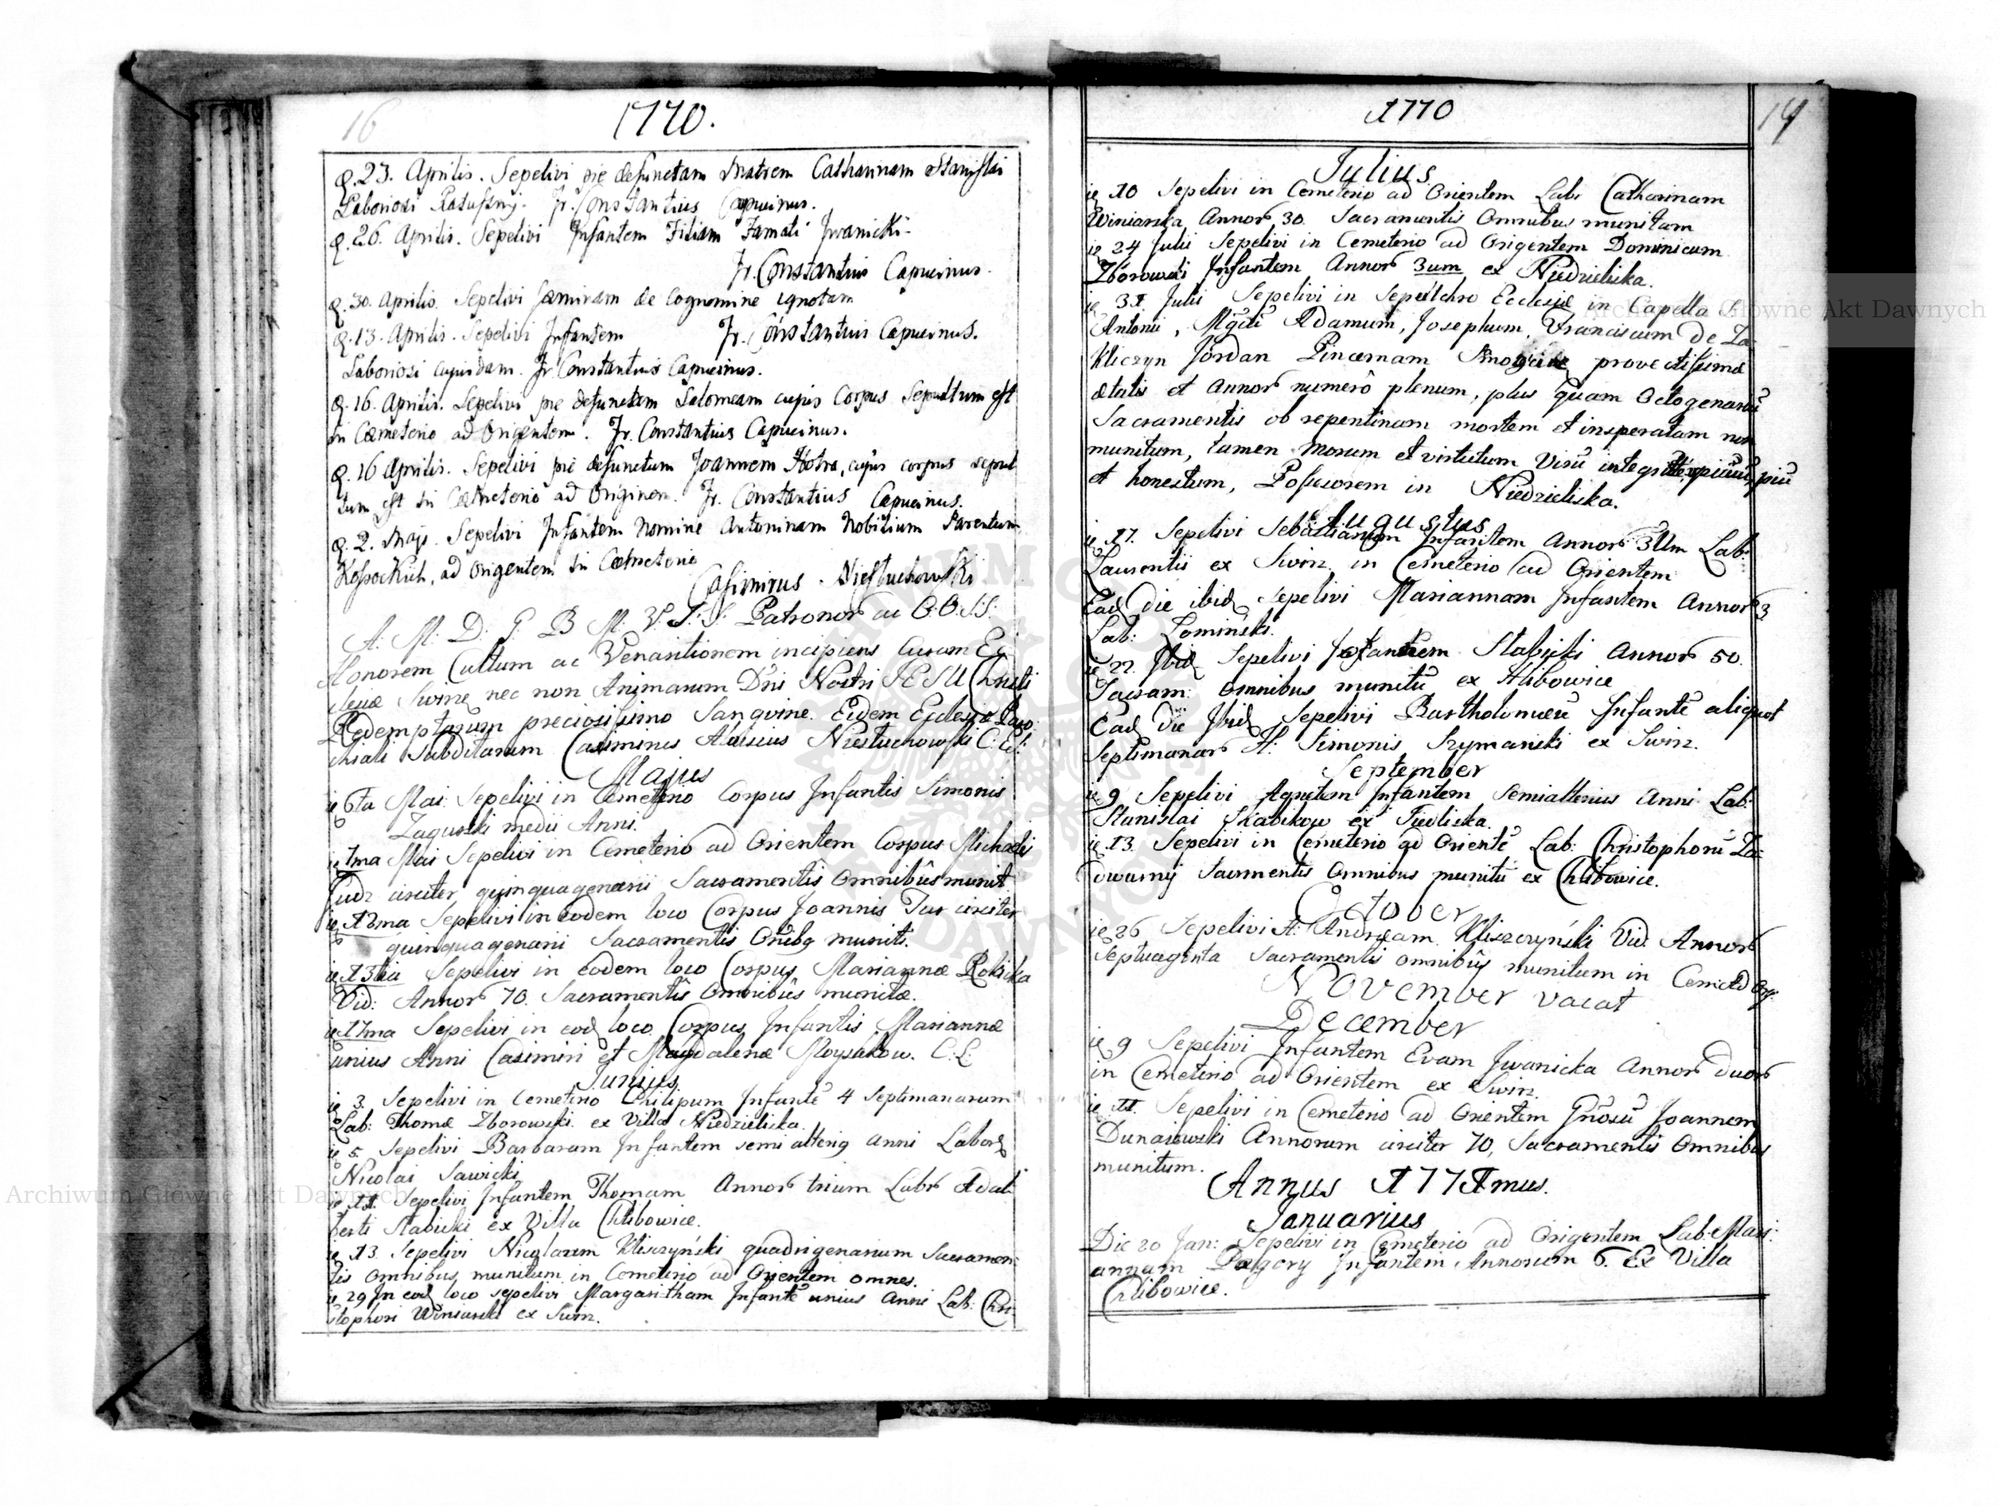 16
1770.
D. 23. Aprilis. Sepelivi pie defunctam Matrem Catharinam Stanislai
Laboriosi Ratuszny. Fr. Constantius Capucinus.
D. 26. Aprilis. Sepelivi Infantem Filiam Famati Iwanicki.
Fr. Constantius Capucinus.
D. 30. Aprilis. Sepelivi foeminam de Cognomine ignotam
Fr. Constantius Capucinus.
D. 13. Aprilis. Sepelivi Infantem
Laboriosi cujusdam. Fr. Constantius Capucinus.
D. 16. Aprilis. Sepelivi pie defunctam Salomeam cujus Corpus Sepultum est
in Coemeterio ad Orientem. Fr. Constantius Capucinus.
D. 16 Aprilis. Sepelivi pie defunctum Joannem cujus corpus sepul
tum est in Coemeterio ad Originem. Fr. Constantius Capucinus.
D. 2. Maji. Sepelivi Infantem Nomine Antoninam Nobilium Parentum
ad Origentem in Coemeterio
Casimirus Niestuchowski
A: M: D: G: B M: V: S: S: Patronor ac O:O:S:S:
Honorem Cultum ac Venerationem incipiens Curam Ec
clesiae Swirz nec non Animarum Dni Nostri JESU Christi
Redemptarum preciosissimo Sangvine. Eidem Ecclesiae Paro
chiali Subditarum Casimirus Niestuchowski
Majus
ie 6ta Mai: Sepelivi in Cemeterio Corpus Infantis Simonis
Zagurski medii Anni.
ie 7ma Mai Sepelivi in Cemeterio ad Orientem Corpus Michaelis
circiter quinquagenarii Sacramentis Omnibus munit
ie 12ma Sepelivi in eodem loco Corpus Joannis Tur circiter
quinquagenarii Sacramentis Omibq munits.
ie 13tia Sepelivi in eodem loco Corpus Mariannae Rolicka
Vid: Annor 70. Sacramentis Omnibus munitae.
ie 17ma Sepelivi in eod loco Corpus Infantis Mariannae
unius Anni Casimiri et Magdalenae Moysakow. C: L:
Junius
ie 3. Sepelivi in Cemeterio Philipum Infante 4 Septimanarum
Lab: Thomae Zborowski ex Villa Niedzieliska.
ie 5 Sepelivi Barbaram Infantem semi alterig anni Labor
Nicolai Sawicki
ie 11. Sepelivi Infantem Thomam Annor trium Labr Adal
berti Stabicki ex Villa Chlibowice.
ie 13 Sepelivi Nicolaum Kliszczyński quadrigenarium Sacramen
tis Omnibus munitum in Cemeterio ad Orientem omnes.
ie 29 In eod loco sepelivi Margaritham Infante unius Anni Lab: Chri
stophori Winiarski ex Swirz.
1770
17
Julius
ie 10 Sepelivi in Cemeterio ad Orientem Lab: Catharinam
Winiarska Annor 30. Sacramentis Omnibus munitam
ie 24 Julii Sepelivi in Cemeterio ad Origentem Dominicum
Zborowski Infantem Annor 3um ex Niedzieliska.
ie 31 Julii Sepelivi in Sepulchro Ecclesiae in Capella
Antonii, Mgdu Adamum, Josephum, Franciscum De Za
kliczyn Jordan Pincernam provectissimae
aetatis et Annor numerô plenum, plus quam Octogenariu
Sacramentis ob repentinam mortem et insperatam non
munitum, tamen Morum et virtutum Viru piu
et honestum, Possessorem in Niedzieliska.
Augustus
ie 17. Sepelivi Sebastianum Infantem Annor 3um Lab:
Laurentii ex Swirz in Cemeterio ad Orientem
Ead die ibid Sepelivi Mariannam Infantem Annor 3
Lab: Lominski.
ie 22 Ibid Sepelivi Stabicki Annor 50.
Sacram: Omnibus munitu ex Hlibowice
Ead die Ibid Sepelivi Bartholomaeu Infante aliquot
Septimanar Simonis Szymanski ex Swirz.
September
ie 9 Sepelivi Agnetem Infantem Semialterius Anni Lab:
Stanislai Skabikow ex
ie 13. Sepelivi in Cemeterio ad Oriente Lab: Christophoru Za
Sacrmentis Omnibus munitu ex Chlibowice.
October
ie 26 Sepelivi Andream Kliszczyński Vid Annor
Septuaginta Sacramentis omnibus munitum in Cemet ad Or:
November vacat
December
ie 9 Sepelivi Infantem Evam Iwanicka Annor duor
in Cemeterio ad Orientem ex Swirz.
ie 11. Sepelivi in Cemeterio ad Orientem Gnosu Joannem
Dunaiewski Annorum circiter 70, Sacramentis Omnibus
munitum.
Annus 1771mus.
Januarius
Die 20 Jan: Sepelivi in Cemeterio ad Origentem Lab: Mari
annam Infantem Annorum 6. Ex Villa
Chlibowice.
Archiwum Główne Akt Dawnych
Archiwum Główne Akt Dawnych